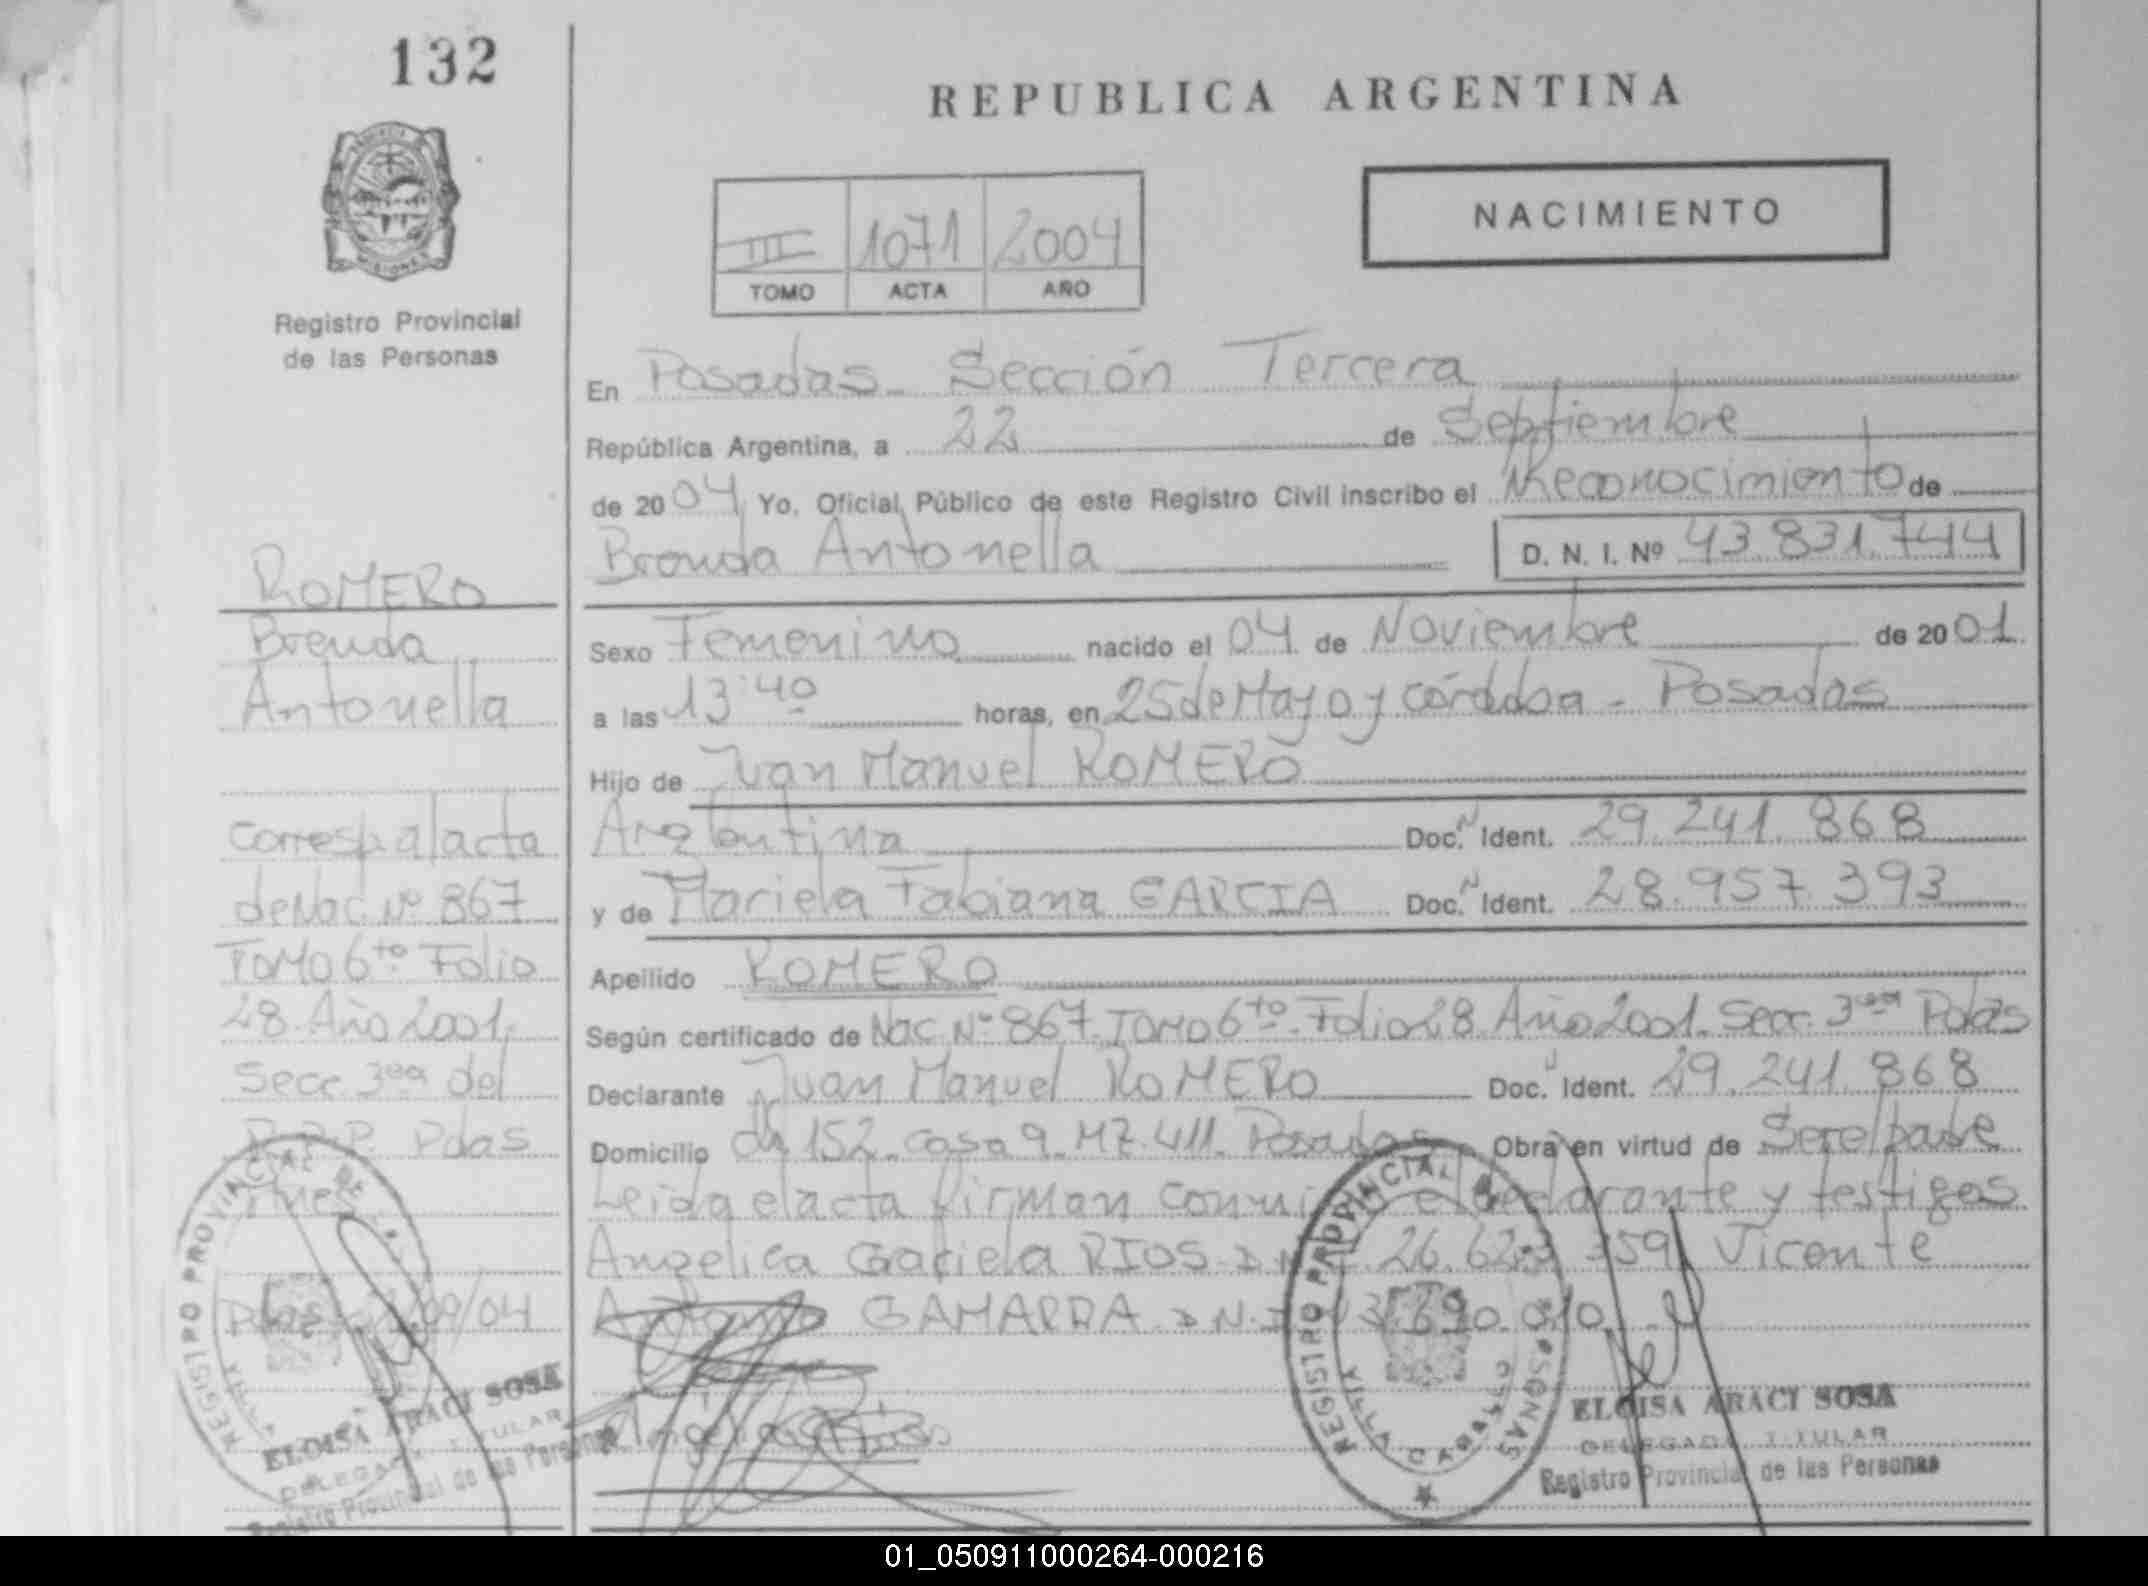 132
REPUBLICA ARGENTINA
MISIONES
Registro Provincial
de las Personas
NACIMIENTO
III 1071 2004
TOMO ACTA AÑO
En Posadas Sección Tercera
República Argentina, a 22 de Septiembre
de 2004 Yo, Oficial Público de este Registro Civil inscribo el Reconocimiento de
Brenda Antonella D. N. I. Nº 43.831.744
ROMERO
Brenda
Antonella
Sexo Femenino nacido el 04 de Noviembre de 2001
a las 13:40 horas, en 25 de Mayo y córdoba - Posadas
Hijo de Juan Manuel ROMERO
Argentina Doc. N Ident. 29.241.868
y de Mariela Fabiana GARCIA Doc. N Ident. 28.957.393
Apellido ROMERO
Según certificado de Nac Nº 867 TOMO 6to Folio 28 Año 2001 Secc. 3era Pdas
Declarante Juan Manuel ROMERO Doc. Ident. 29.241.868
Domicilio ch 152 casa 9 Mz 411 Posadas Obra en virtud de Ser el padre
Leida el acta firman conmigo el declarante y testigos
Angelica Graciela RIOS D.N.I. 359 Vicente
Antonio GAMARRA D.N.I.
Corresp al acta
de Nac Nº 867
TOMO 6to Folio
28 Año 2001
Secc 3era del
R.P.P. Pdas
Mnes
Pdas /09/04
REGISTRO PROVINCIAL DE
ELOISA ARACI SOSA
DELEGADA TITULAR
Registro Provincial de las Personas
REGISTRO PROVINCIAL DE LAS PERSONAS
VILLA CABALLO
ELOISA ARACI SOSA
DELEGADA TITULAR
Registro Provincial de las Personas
01_050911000264-000216